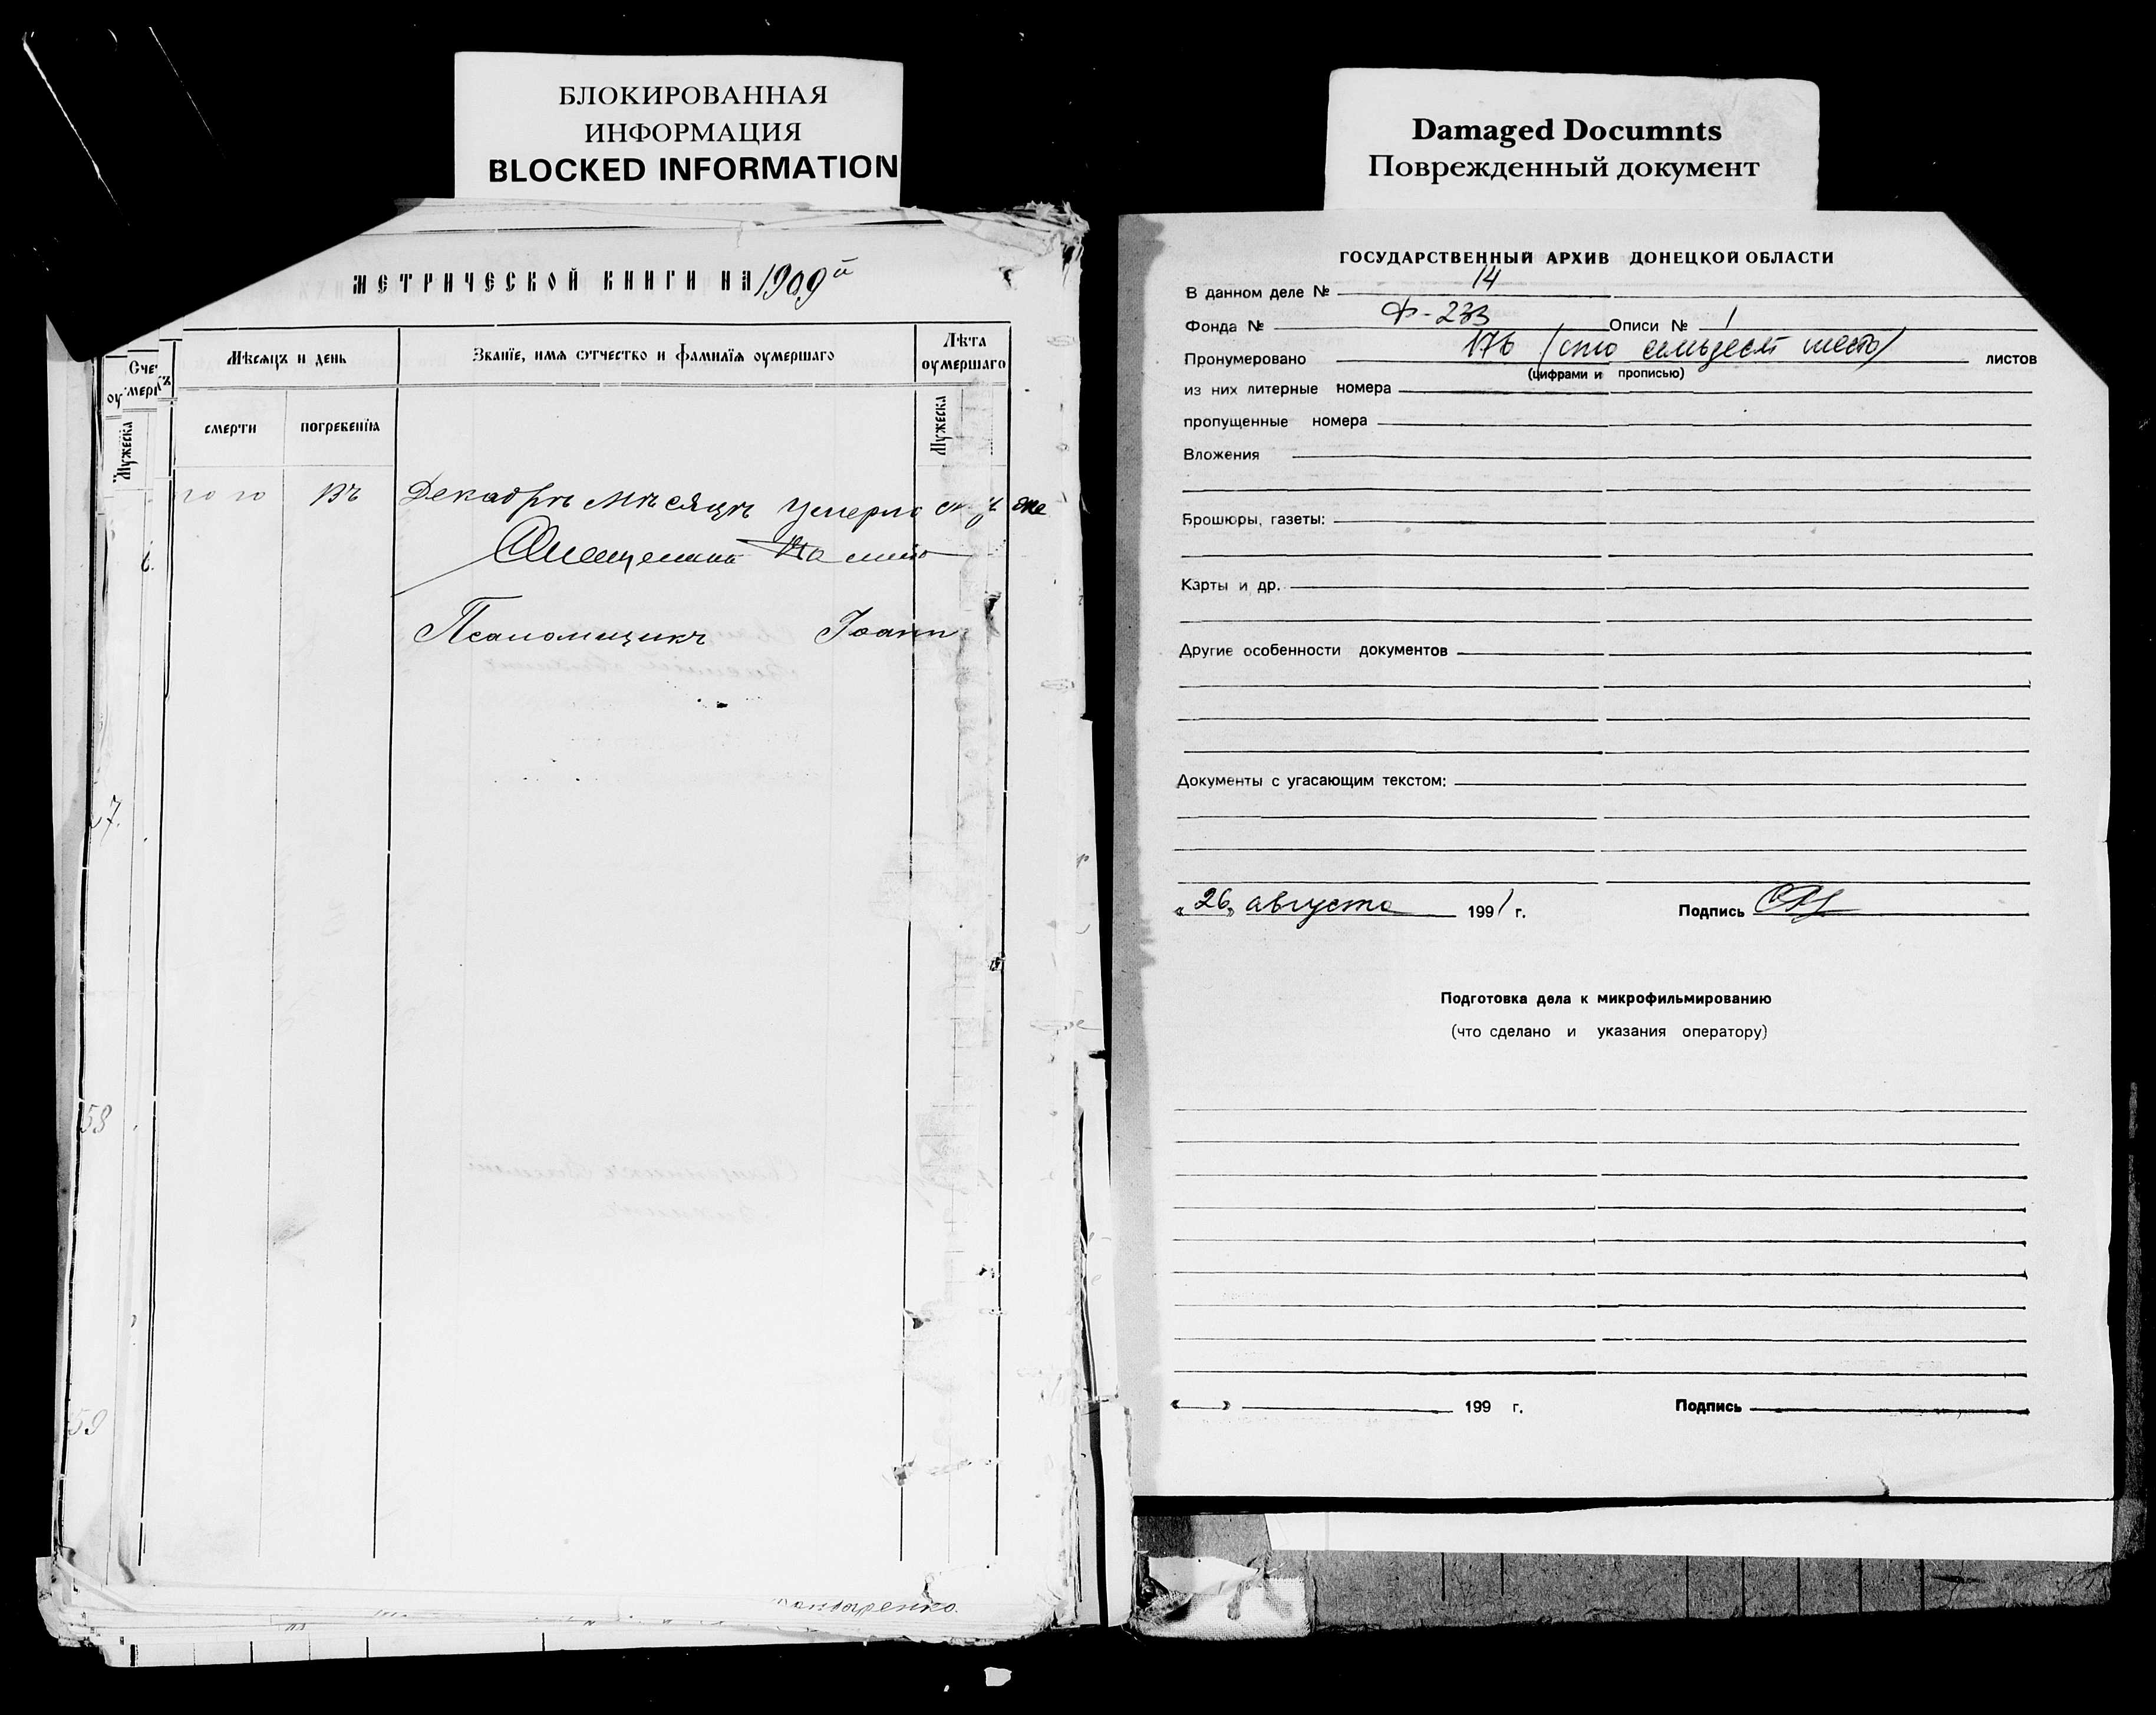 БЛОКИРОВАННАЯ
ИНФОРМАЦИЯ
BLOCKED INFORMATION
МЕТРИЧЕСКОЙ КНИГИ НА 1909й
Счетъ
Мужеска
Мѣсяцъ и день
смерти
погребенїѧ
Званїе, имѧ ѻтчество и фамилїѧ оумершаго
Лѣта
оумершаго
Мужеска
го го
въ
Декабрѣ мѣсяцѣ умерло
Псаломщикъ Іоанн
7.
58
59
Damaged Documnts
Поврежденный документ
ГОСУДАРСТВЕННЫЙ АРХИВ ДОНЕЦКОЙ ОБЛАСТИ
В данном деле № 14
Фонда № Ф-233 Описи № 1
Пронумеровано 176 /сто семьдесят шесть/ листов
(цифрами и прописью)
из них литерные номера
пропущенные номера
Вложения
Брошюры, газеты:
Карты и др.
Другие особенности документов
Документы с угасающим текстом:
«26» августа 1991 г. Подпись
Подготовка дела к микрофильмированию
(что сделано и указания оператору)
« » 199 г. Подпись